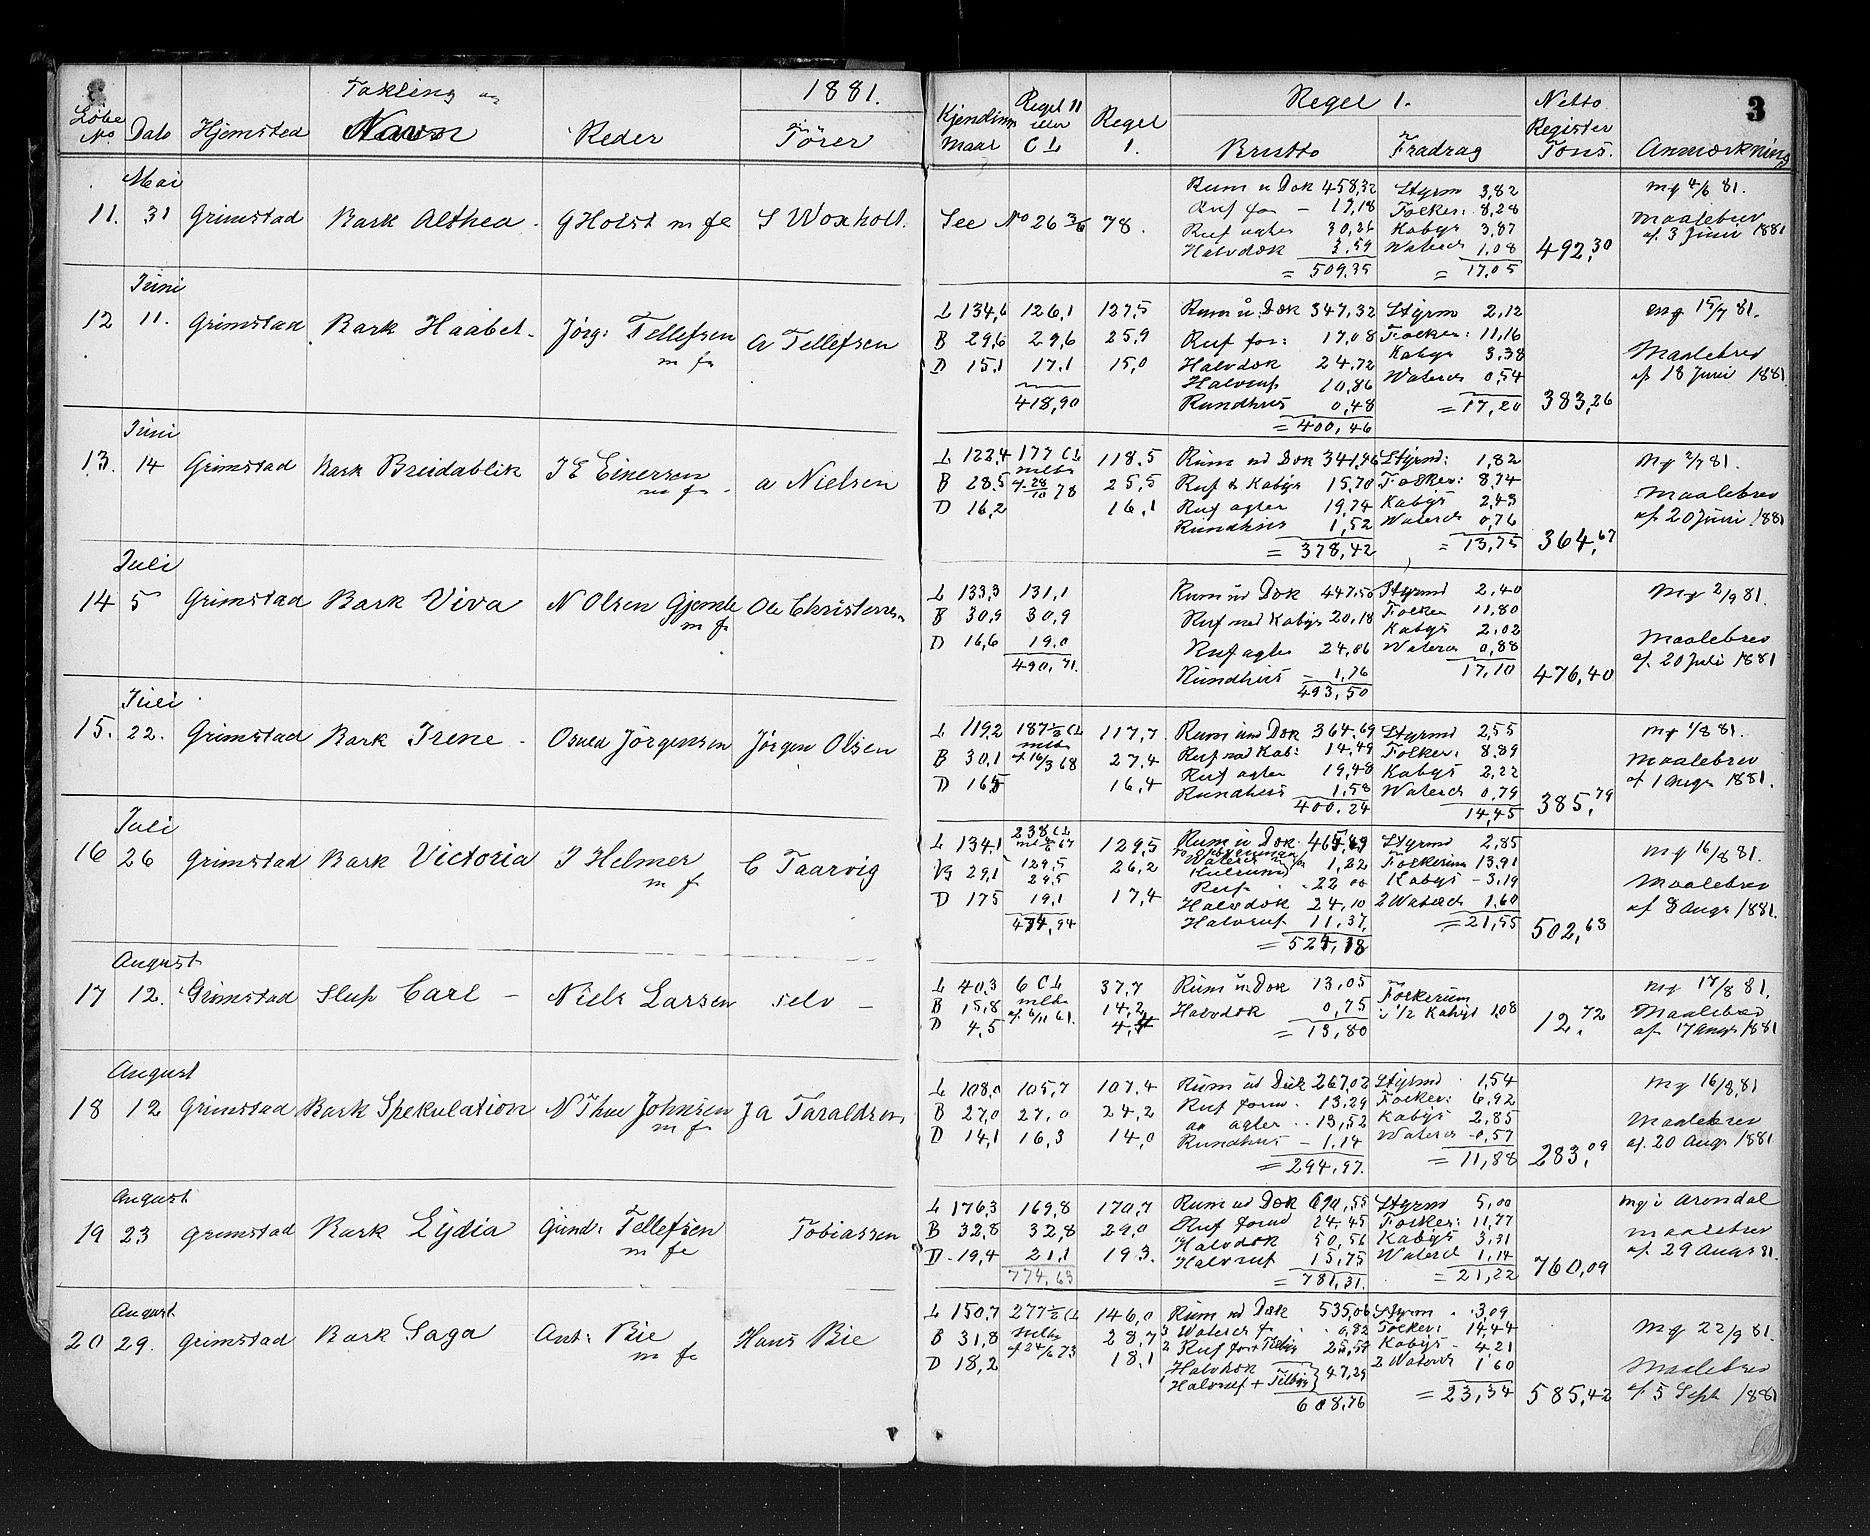 1881.
3
Løbe No. Dato Hjemsted Takling og Navn Reder Fører Kjendings Maal Regel II eller CL Regel 1. Regel 1. Brutto Fradrag Netto Register Tons. Anmærkning
Mai
11. 31 Grimstad Bark Althea - G Holst m fl S Woxholt. See No 26 3/6 78.
Rum u Dæk 458,32 Styrm 3,82 mg 4/6 81.
Ruf for - 17,18 Folker: 8,28 Maalebrev
Ruf agter 30,26 Kabys 3,87 af 3 Juni 1881
Halvdæk 3,59 Waterch 1,08 492,30
= 509,35 = 17,05
Juni
12 11. Grimstad Bark Haabet - Jørg: Tellefsen m fl A Tellefsen
L 134,6 126,1 127,5 Rum u. Dæk 347,32 Styrm 2,12 mg 15/7 81.
B 29,6 29,6 25,9 Ruf for: 17,08 Folker: 11,16
D 15,1 17,1 15,0 Halvdæk 24,72 Kabys 3,38 Maalebrev
Halvruf 10,86 Waterch 0,54 af 18 Juni 1881
418,90 Rundhus 0,48 = 17,20 383,26
= 400,46
Juni
13. 14 Grimstad Bark Breidablik J E Einersen m fl - A Nielsen
L 122,4 177 CL 118,5 Rum ud Dæk 341,46 Styrmd: 1,82 mg 2/7 81.
B 28,5 mlbr af 28/10 78 25,5 Ruf & Kabys 15,70 Folker: 8,74 Maalebrev
D 16,2 16,1 Ruf agter 19,74 Kabys 2,43 af 20 Juni 1881
Rundhus 1,52 Waterch 0,76
= 378,42 = 13,75 364,67
Juli
14 5 Grimstad Bark Viva N Olsen Gjømle m fl Ole Christensen
L 133,3 131,1 Rum ud Dæk 447,50 Styrmd 2,40 mg 2/9 81.
B 30,9 30,9 Ruf med Kabys 20,18 Folker 11,80
D 16,6 19,0 Kabys 2,02 Maalebrev
490,71. Ruf agter 24,06 Waterch 0,88 af 20 Juli 1881
Rundhus - 1,76 17,10 476,40
493,50
Juli
15. 22. Grimstad Bark Irene - Osuld Jørgensen Jørgen Olsen
L 119,2 187½ CL 117,7 Rum und Dæk 364,69 Styrmd 2,55 mg 1/8 81.
B 30,1 mlbr af 16/3 68 27,4 Ruf med Kab: 14,49 Folker: 8,89 Maalebrev
D 16,5 16,4 Ruf agter 19,48 Kabys 2,22 af 1 Augs 1881.
Rundhus 1,58 Waterch 0,79
400,24 14,45 385,79
Juli
16 26 Grimstad Bark Victoria J Helmer m fl C Taarvig
L 134,1 238 CL 129,5 Rum u Dæk 465,49 Styrmd 2,85 mg 16/8 81.
B 29,1 129,5 26,2 1,22 Folkerum 13,91
29,5 Ruf 22,00 Kabys - 3,19 Maalebrev
D 17,5 19,1 17,4 Halvdæk 24,10 2 Waterch 1,60 af 8 Augs 1881.
474,94 Halvruf 11,37 = 21,55 502,63
= 524,18
August
17 12. Grimstad Slup Carl - Niels Larsen selv -
L 40,3 6 CL 37,7 Rum u Dæk 13,05 Folkerum mg 17/8 81.
B 15,8 mlbr af 6/11 61. 14,2 Halvdæk 0,75 i ½ Kabys 1,08 Maalebrev
D 4,5 4,4 = 13,80 12,72 af 17 Augs 1881
August
18 12 Grimstad Bark Spekulation N Thue Johnsen m fl J A Taraldsen
L 108,0 105,7 107,4 Rum ud Dæk 267,02 Styrmd 1,54 mg 16/8,81
B 27,0 27,0 24,2 Ruf forud - 13,29 Folker: 6,92
D 14,1 16,3 14,0 do agter .. 13,52 Kabys 2,85 Maalebrev
Rundhus - 1,14 Waterch - 0,57 af. 20 Augs 1881
= 294,97. = 11,88 283,09
August
19 23 Grimstad Bark Lydia Gund: Tellefsen m fl Tobiassen
L 176,3 169,8 170,7 Rum ud Dæk 690,55 Styrmd 5,00 mg i Arendal
B 32,8 32,8 29,0 Ruf forud 24,45 Folker: 11,77 Maalebrev
D - 19,4 21,1 19,3. Halvdæk 50,56 Kabys 3,31 af. 29 Augs 81.
774,63 Halvruf 15,75 Waterch 1,14
= 781,31. = 21,22 760,09
August
20 29. Grimstad Bark Saga Ant: Bie m fl Hans Bie
L 150,7 277½ CL 146,0 Rum ud Dæk 535,06 Styrm - 3,09
B 31,8 mlbr af 24/6 73 28,7 3 Waterch f 0,82 Folker: 14,44 mg 22/9 81.
D 18,2 18,1 2 Ruf for + Tilbyg 25,59 Kabys - 4,21
Halvdæk 2 Waterch 1,60 Maalebrev
Halvruf + Tilbyg } 47,29 af 5 Sept 1881
608,76 = 23,34 585,42